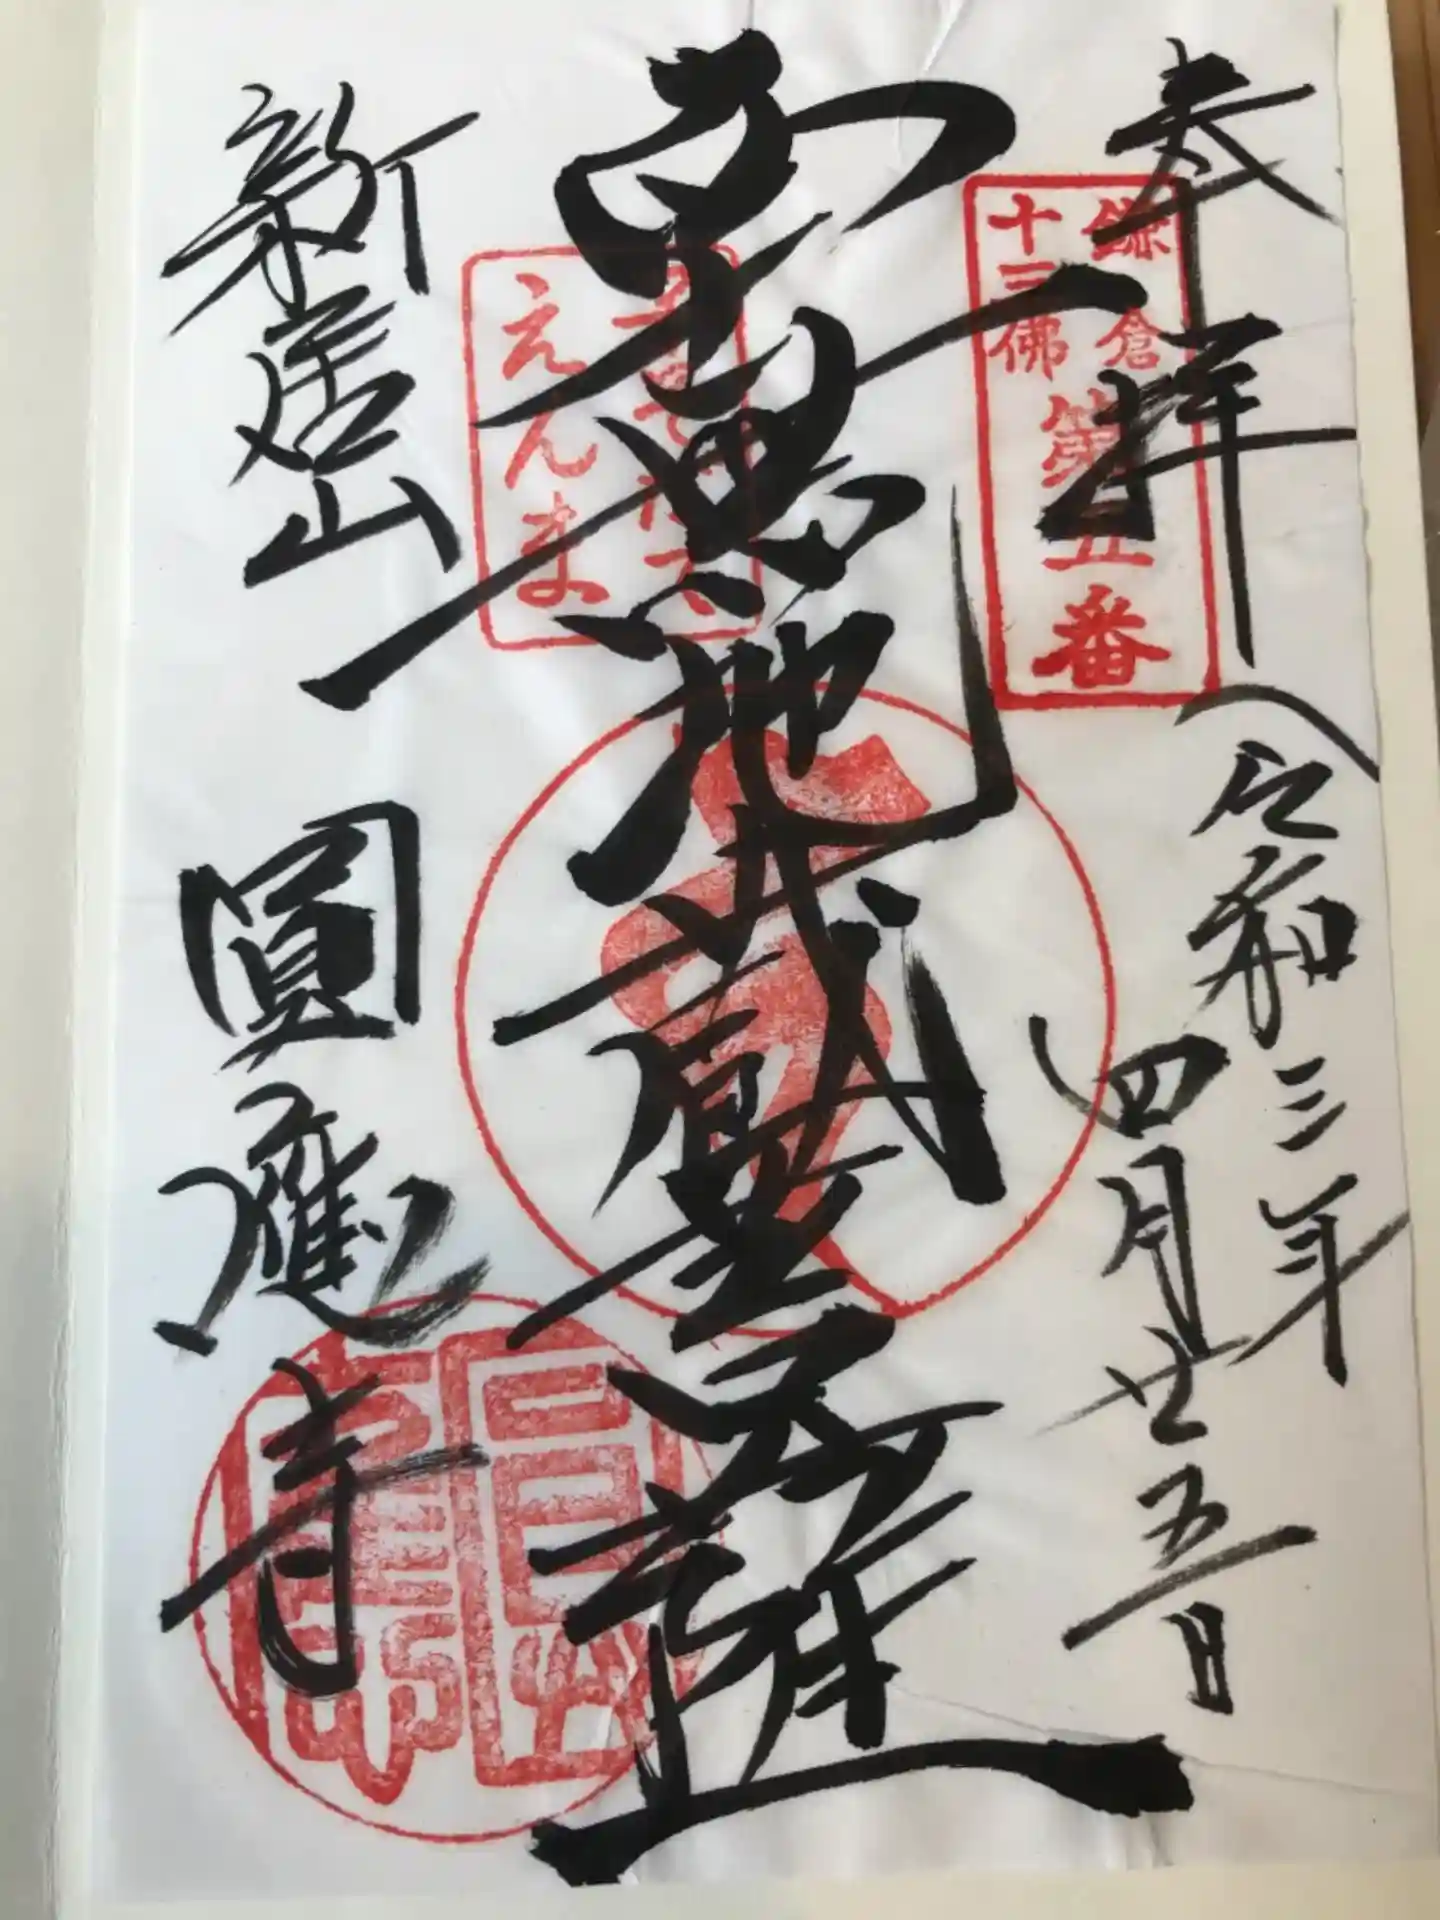 奉拝
令和三年
四月廿五日
鎌倉
十三佛
第五番
南無地蔵菩薩
えんま
新居山
圓應寺